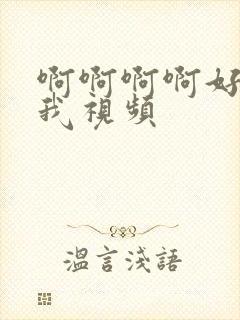 啊啊啊啊好
我視頻
溫言淺語